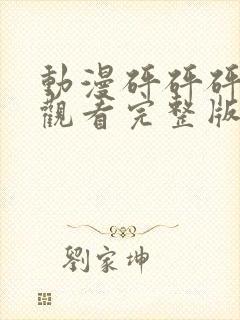 動漫砰砰砰
觀看完整版
劉家坤